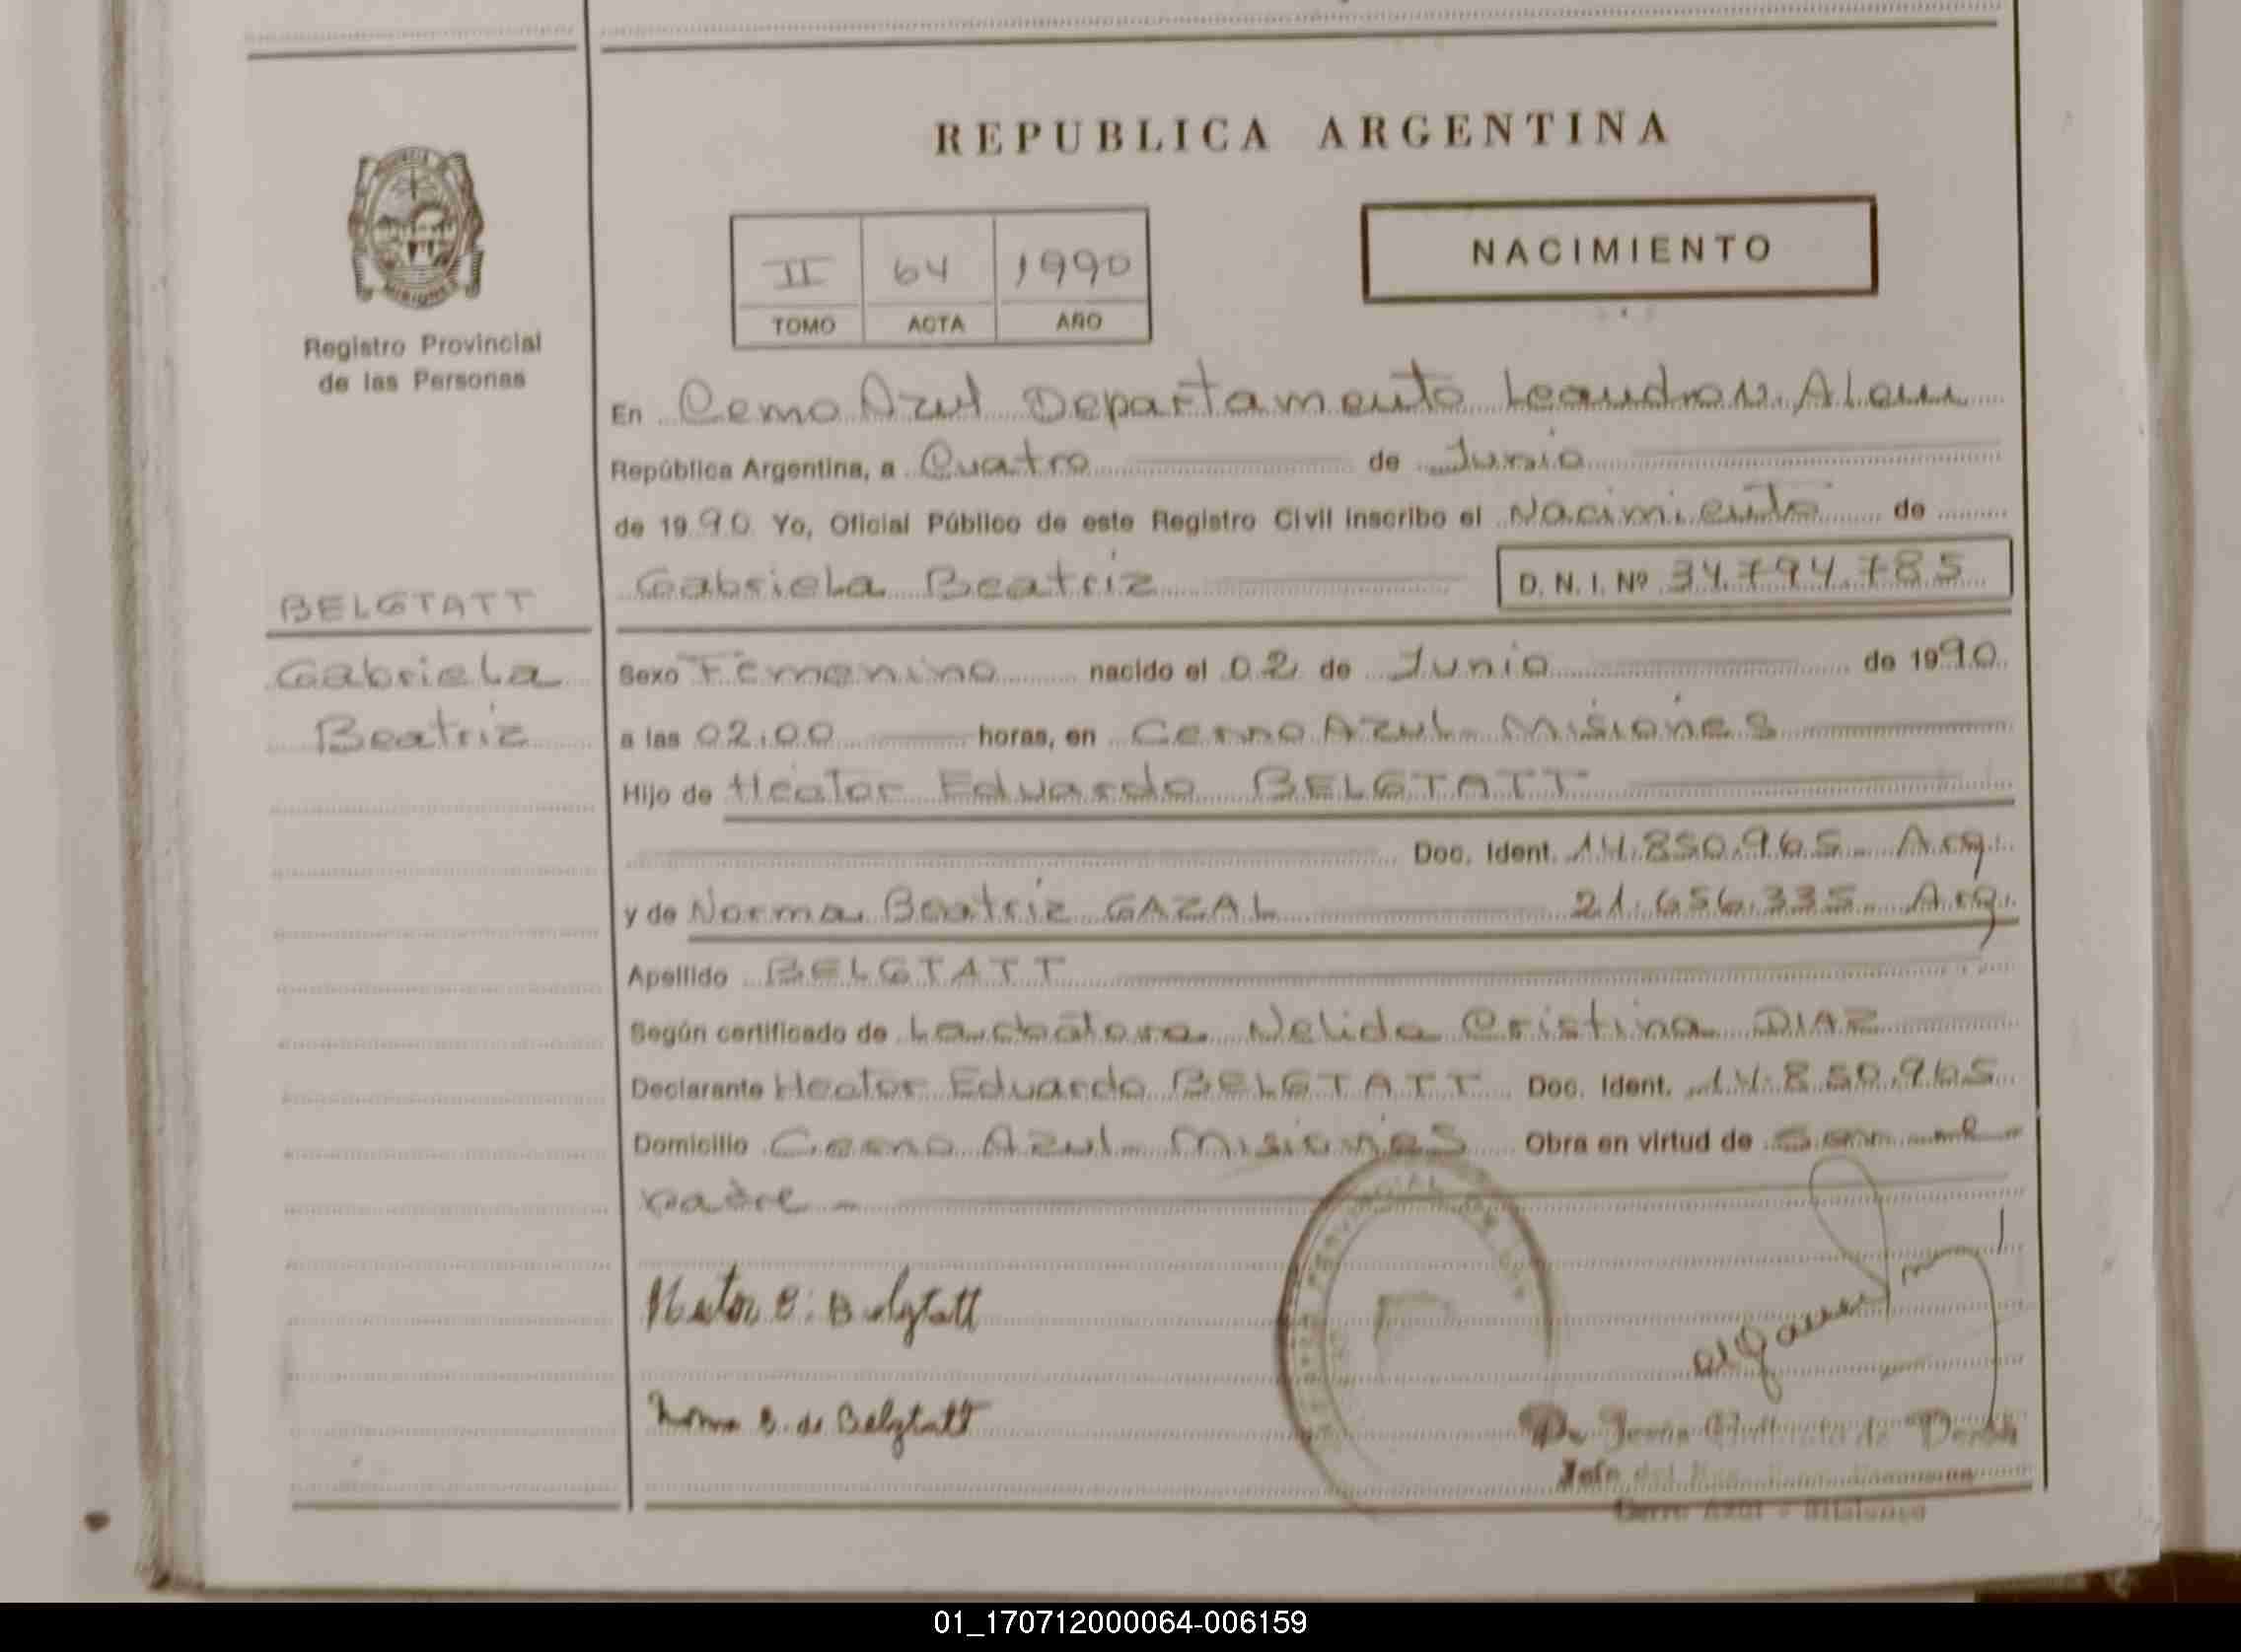 REPUBLICA ARGENTINA
NACIMIENTO
II 64 1990
TOMO ACTA AÑO
MISIONES
Registro Provincial
de las Personas
En Cerro Azul Departamento Leandro N. Alem
República Argentina, a Cuatro de Junio
de 1990 Yo, Oficial Público de este Registro Civil inscribo el Nacimiento de
Gabriela Beatriz D. N. I. Nº 34.794.785
BELGTATT
Gabriela
Beatriz
Sexo Femenino nacido el 02 de Junio de 1990
a las 02.00 horas, en Cerro Azul - Misiones
Hijo de Hector Eduardo BELGTATT
Doc. Ident. 14.850.965 - Arg.
y de Norma Beatriz GAZAL 21.656.335 - Arg.
Apellido BELGTATT
Según certificado de La doctora Nelida Cristina DIAZ
Declarante Hector Eduardo BELGTATT Doc. Ident. 14.850.965
Domicilio Cerro Azul - Misiones Obra en virtud de ser el
padre -
Hector E. Belgtatt
Norma B. de Belgtatt
Jefe del
Cerro Azul - Misiones
01_170712000064-006159